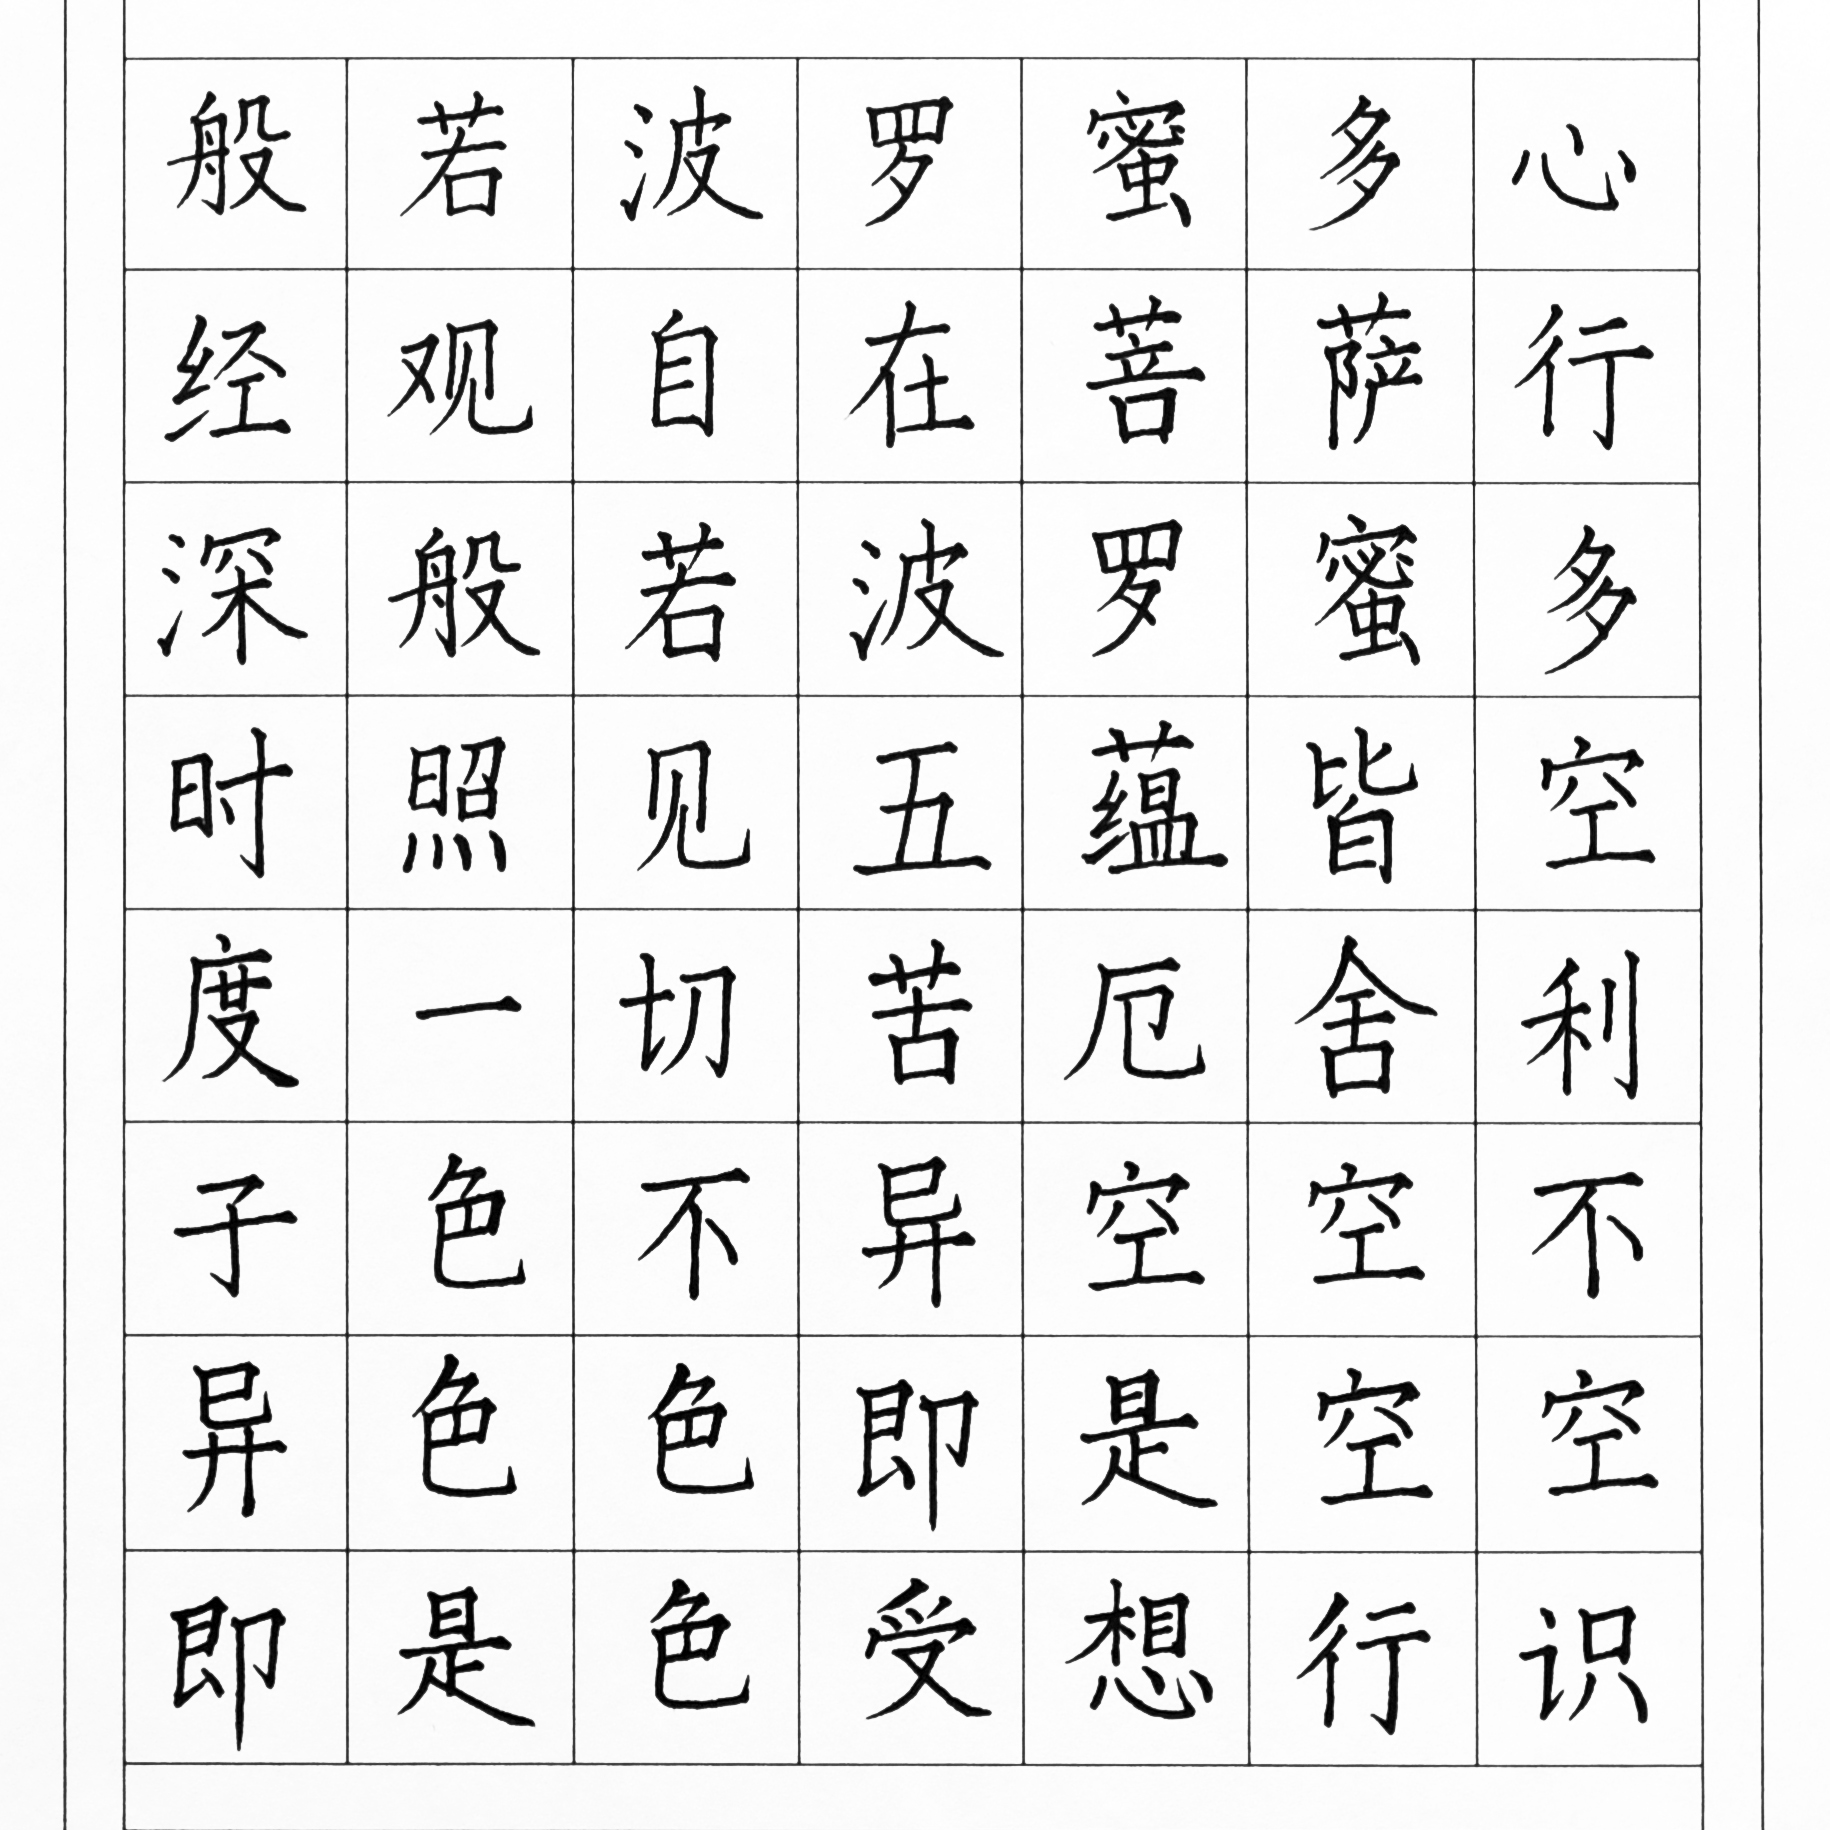 般若波罗蜜多心
经观自在菩萨行
深般若波罗蜜多
时照见五蕴皆空
度一切苦厄舍利
子色不异空空不
异色色即是空空
即是色受想行识